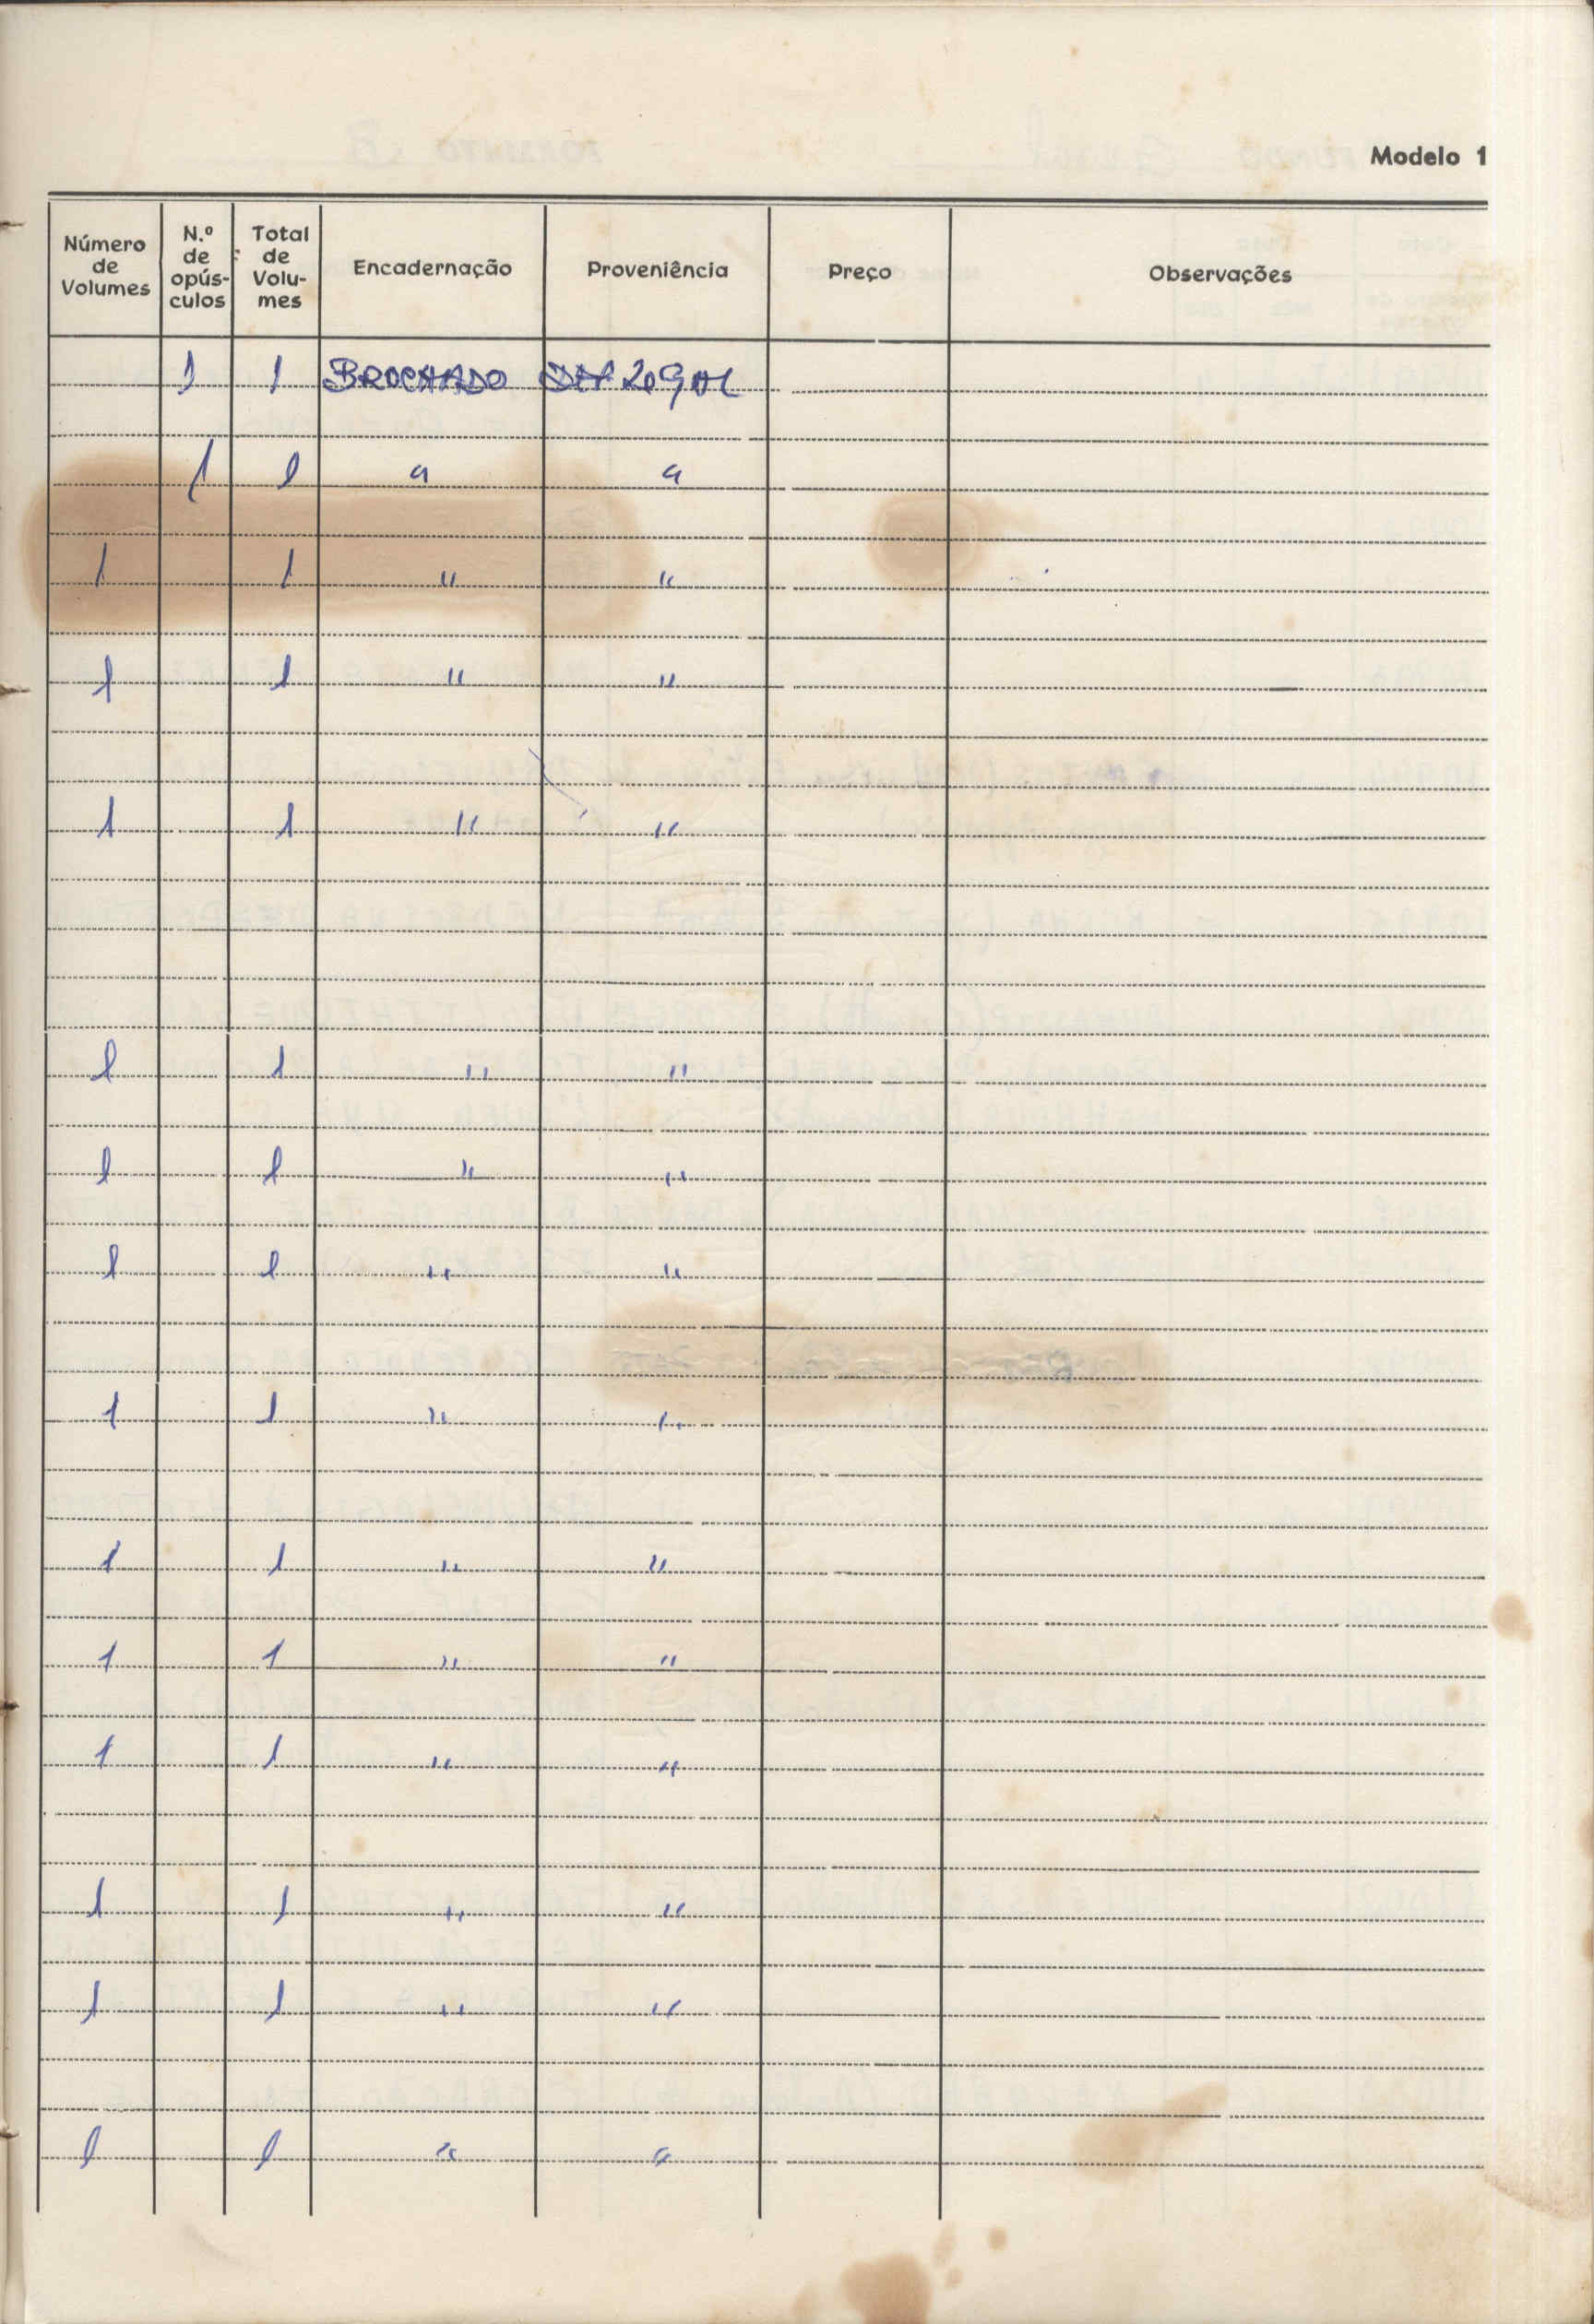 Modelo 1
Número de Volumes N.º de opús- culos Total de Volu- mes Encadernação Proveniência Preço Observações
1 1 BROCHADO
1 1 " "
1 1 " "
1 1 " "
1 1 " "
1 1 " "
1 1 " "
1 1 " "
1 1 " "
1 1 " "
1 1 " "
1 1 " "
1 1 " "
1 1 " "
1 1 " "